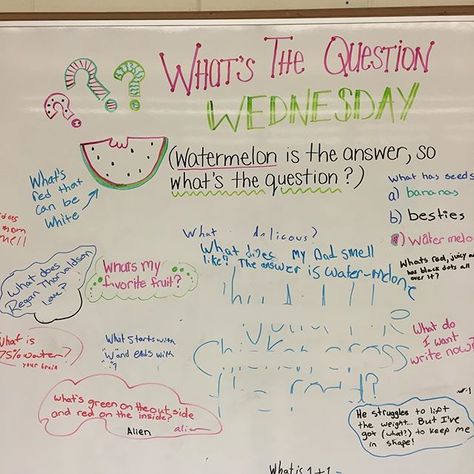 ? ? ?
WHAT'S THE QUESTION
WEDNESDAY
(Watermelon is the answer, so
what's the question?)
What's
red that
can be
White
What has seeds
a) bananas
b) besties
c) Watermelon
What's red, juicy
has black dots all
over it?
What delicious?
What does My Dad smell
like? The answer is water-melone
mom
smell
What does
Regan
love?
Whats my
favorite fruit?
What is
75% water?
your brain
What starts with
W and ends with
?
what's green on the outside
and red on the inside?
Alien alien
Chicken cross
the road?
What do
I want
write now?
He struggles to lift
the weight... But I've
got (what?) to keep me
in shape!
What is 1+1